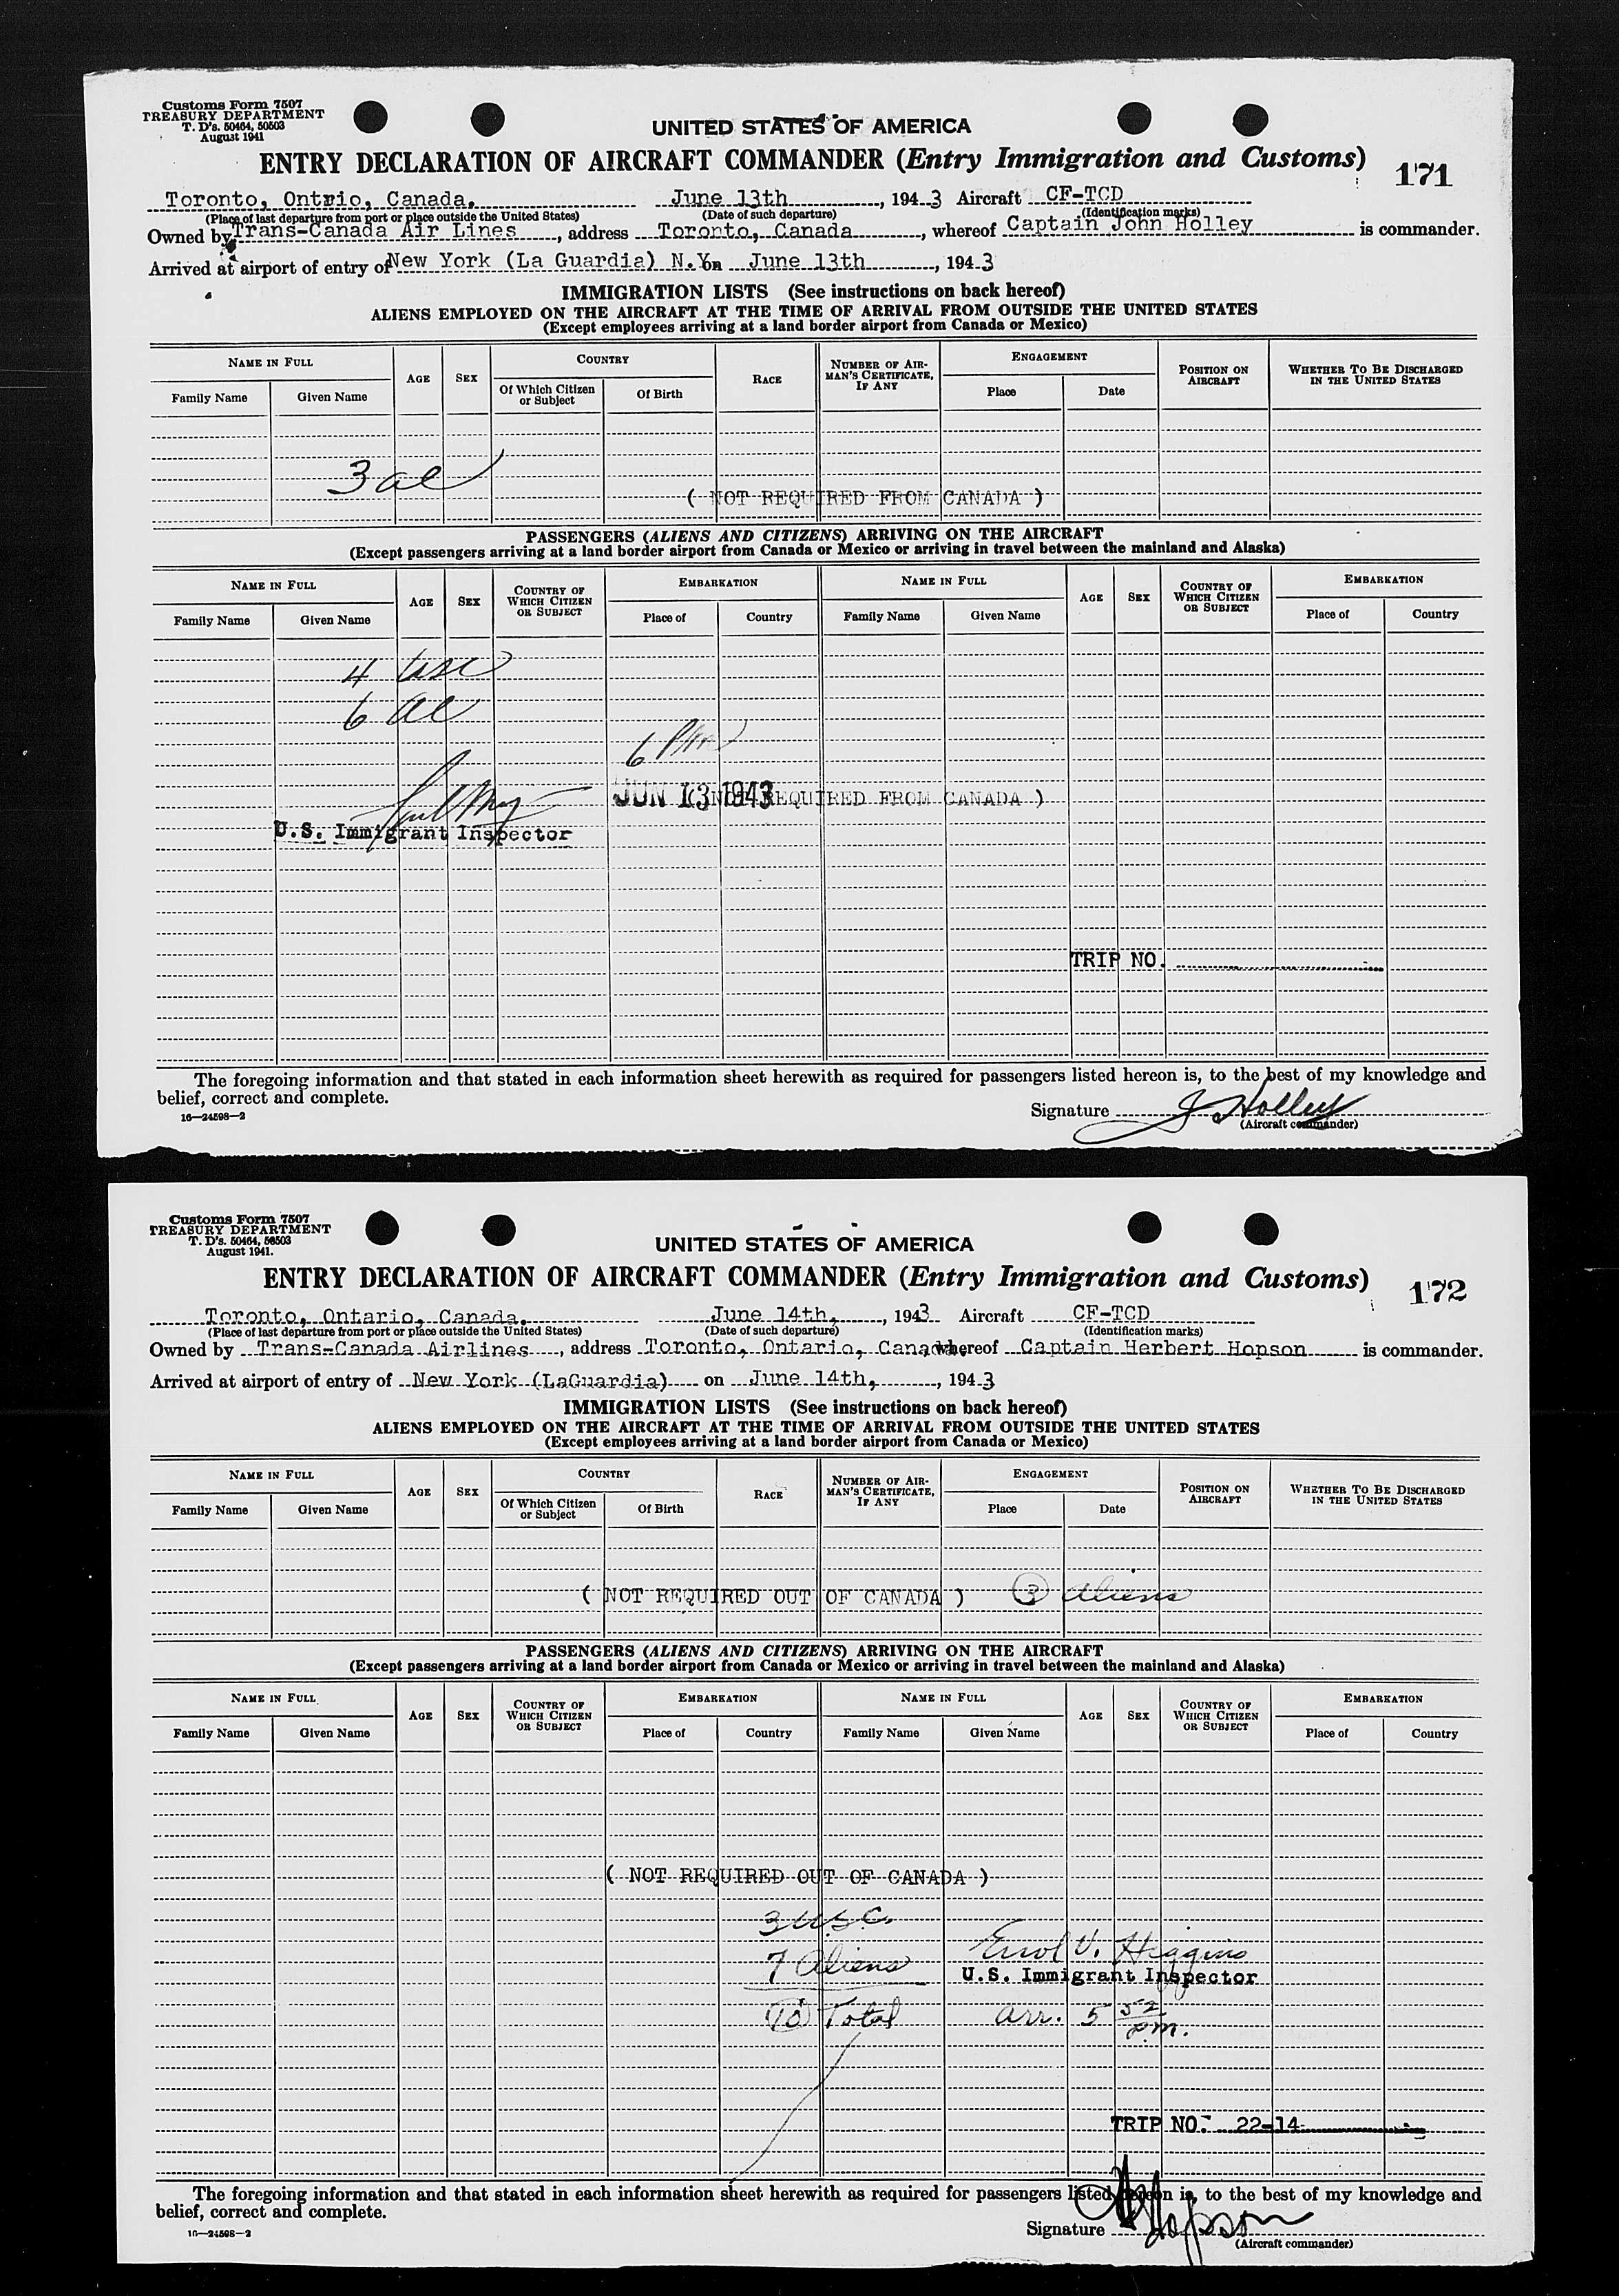 Customs Form 7507
TREASURY DEPARTMENT
T. D's. 50464, 50503
August 1941
UNITED STATES OF AMERICA
ENTRY DECLARATION OF AIRCRAFT COMMANDER (Entry Immigration and Customs)
171
Toronto, Ontrio, Canada, June 13th, 1943 Aircraft CF-TCD
(Place of last departure from port or place outside the United States) (Date of such departure) (Identification marks)
Owned by Trans-Canada Air Lines, address Toronto, Canada, whereof Captain John Holley is commander.
Arrived at airport of entry of New York (La Guardia) N.Y. on June 13th, 1943
IMMIGRATION LISTS (See instructions on back hereof)
ALIENS EMPLOYED ON THE AIRCRAFT AT THE TIME OF ARRIVAL FROM OUTSIDE THE UNITED STATES
(Except employees arriving at a land border airport from Canada or Mexico)
NAME IN FULL AGE SEX COUNTRY RACE NUMBER OF AIRMAN'S CERTIFICATE, IF ANY ENGAGEMENT POSITION ON AIRCRAFT WHETHER TO BE DISCHARGED IN THE UNITED STATES
Family Name Given Name Of Which Citizen or Subject Of Birth Place Date
3 al
( NOT REQUIRED FROM CANADA )
PASSENGERS (ALIENS AND CITIZENS) ARRIVING ON THE AIRCRAFT
(Except passengers arriving at a land border airport from Canada or Mexico or arriving in travel between the mainland and Alaska)
NAME IN FULL AGE SEX COUNTRY OF WHICH CITIZEN OR SUBJECT EMBARKATION NAME IN FULL AGE SEX COUNTRY OF WHICH CITIZEN OR SUBJECT EMBARKATION
Family Name Given Name Place of Country Family Name Given Name Place of Country
4 usc
6 al
6 PM
JUN 13 1943 REQUIRED FROM CANADA )
U.S. Immigrant Inspector
TRIP NO.
The foregoing information and that stated in each information sheet herewith as required for passengers listed hereon is, to the best of my knowledge and
belief, correct and complete.
16—24598—2
Signature J Holley
(Aircraft commander)
Customs Form 7507
TREASURY DEPARTMENT
T. D's. 50464, 50503
August 1941.
UNITED STATES OF AMERICA
ENTRY DECLARATION OF AIRCRAFT COMMANDER (Entry Immigration and Customs)
172
Toronto, Ontario, Canada. June 14th, , 1943 Aircraft CF-TCD
(Place of last departure from port or place outside the United States) (Date of such departure) (Identification marks)
Owned by Trans-Canada Airlines, address Toronto, Ontario, Canada. whereof Captain Herbert Hopson is commander.
Arrived at airport of entry of New York (LaGuardia) on June 14th, , 1943
IMMIGRATION LISTS (See instructions on back hereof)
ALIENS EMPLOYED ON THE AIRCRAFT AT THE TIME OF ARRIVAL FROM OUTSIDE THE UNITED STATES
(Except employees arriving at a land border airport from Canada or Mexico)
NAME IN FULL AGE SEX COUNTRY RACE NUMBER OF AIRMAN'S CERTIFICATE, IF ANY ENGAGEMENT POSITION ON AIRCRAFT WHETHER TO BE DISCHARGED IN THE UNITED STATES
Family Name Given Name Of Which Citizen or Subject Of Birth Place Date
( NOT REQUIRED OUT OF CANADA ) 3 Aliens
PASSENGERS (ALIENS AND CITIZENS) ARRIVING ON THE AIRCRAFT
(Except passengers arriving at a land border airport from Canada or Mexico or arriving in travel between the mainland and Alaska)
NAME IN FULL AGE SEX COUNTRY OF WHICH CITIZEN OR SUBJECT EMBARKATION NAME IN FULL AGE SEX COUNTRY OF WHICH CITIZEN OR SUBJECT EMBARKATION
Family Name Given Name Place of Country Family Name Given Name Place of Country
( NOT REQUIRED OUT OF CANADA )
3 U.S.C.
7 Aliens Errol V. Higgins
U.S. Immigrant Inspector
10 Total arr. 5 52 p.m.
TRIP NO. 22-14
The foregoing information and that stated in each information sheet herewith as required for passengers listed hereon is, to the best of my knowledge and
belief, correct and complete.
16—24598—2
Signature H Hopson
(Aircraft commander)